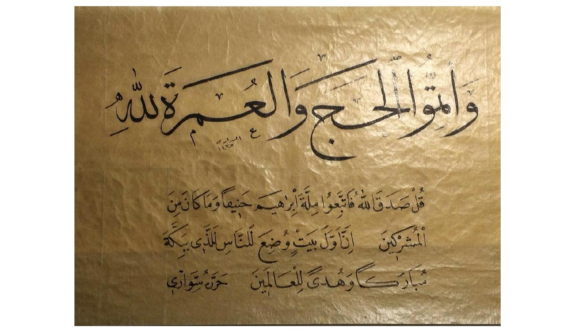 وَاَتِمُّوا الْحَجَّ وَالْعُمْرَةَ لِلّٰهِ
قُلْ صَدَقَ اللهُ فَاتَّبِعُوا مِلَّةَ اِبْرٰهيمَ حَنيفًا وَمَا كَانَ مِنَ
الْمُشْرِكينَ اِنَّ اَوَّلَ بَيْتٍ وُضِعَ لِلنَّاسِ لَلَّذي بِبَكَّةَ
مُبَارَكًا وَهُدًى لِلْعَالَمينَ